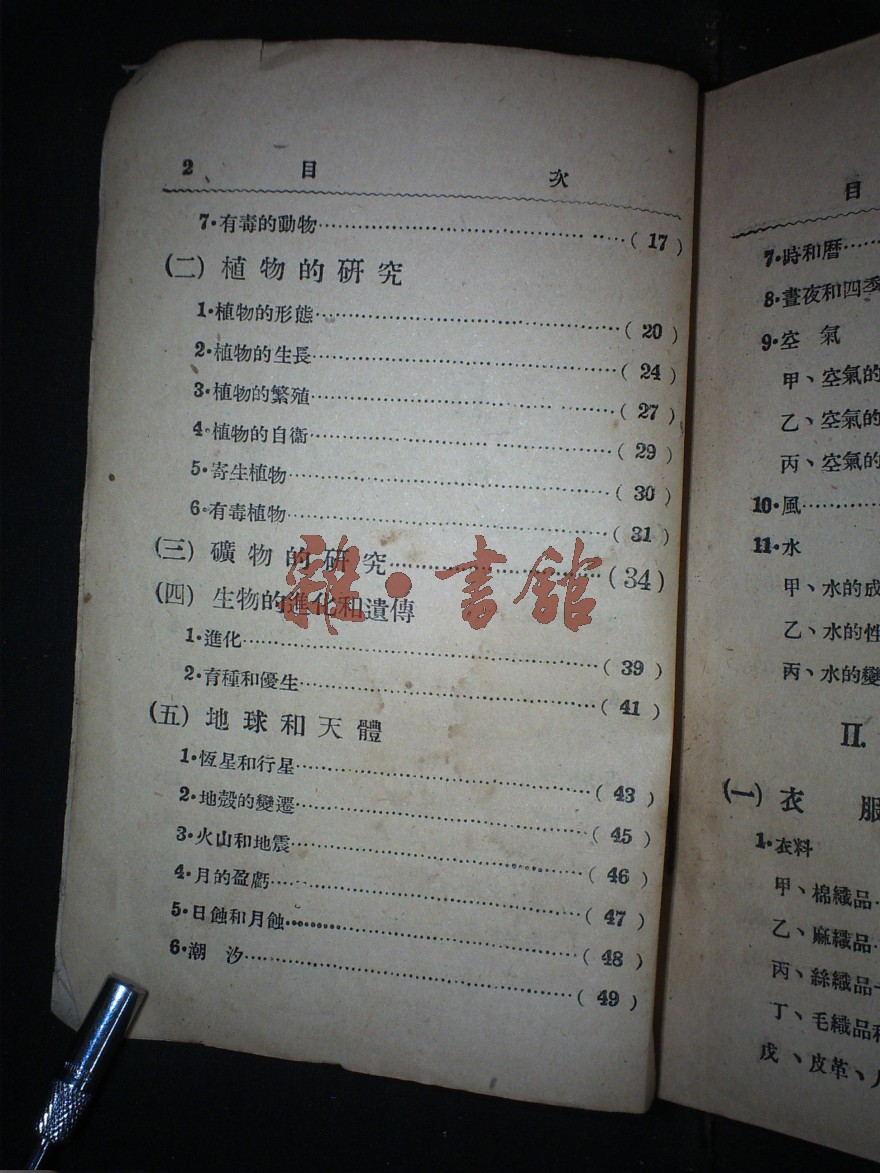 2 目 次
7·有毒的動物……………………( 17 )
(二) 植物的研究
1·植物的形態……………………( 20 )
2·植物的生長……………………( 24 )
3·植物的繁殖……………………( 27 )
4·植物的自衞……………………( 29 )
5·寄生植物……………………( 30 )
6·有毒植物……………………( 31 )
(三) 礦物的研究……………………(34)
(四) 生物的進化和遺傳
1·進化……………………( 39 )
2·育種和優生……………………( 41 )
(五) 地球和天體
1·恆星和行星……………………( 43 )
2·地殼的變遷……………………( 45 )
3·火山和地震……………………( 46 )
4·月的盈虧……………………( 47 )
5·日蝕和月蝕……………………( 48 )
6·潮 汐……………………( 49 )
雜·書館
目
7·時和曆……
8·晝夜和四季
9·空 氣
甲、空氣的
乙、空氣的
丙、空氣的
10·風……
11·水
甲、水的成
乙、水的性
丙、水的變
II.
(一) 衣 服
1·衣料
甲、棉織品…
乙、麻織品…
丙、絲織品…
丁、毛織品和
戊、皮革、